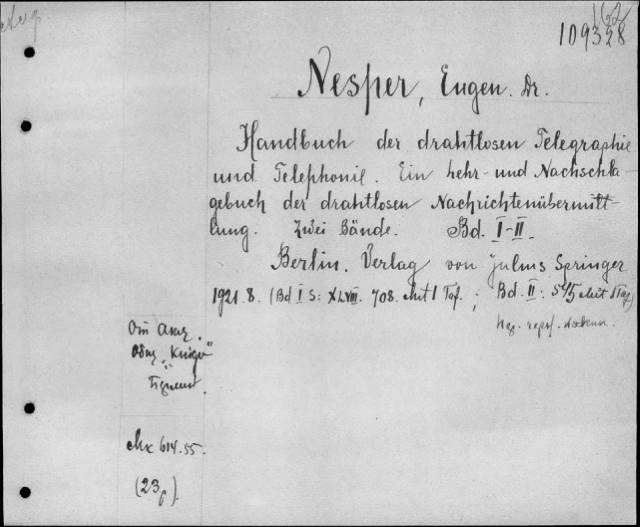 162
109328
Nesper, Eugen. Dr.
Handbuch der drahtlosen Telegraphie
und Telephonie. Ein Lehr- und Nachschla-
gebuch der drahtlosen Nachrichtenübermitt-
lung. Zwei Bände. Bd. I-II.
Berlin. Verlag von Julius Springer
1921. 8. (Bd I S: XLVIII. 708. Mit 1 Taf. ; Bd. II: 545 Mit
614.55.
(23